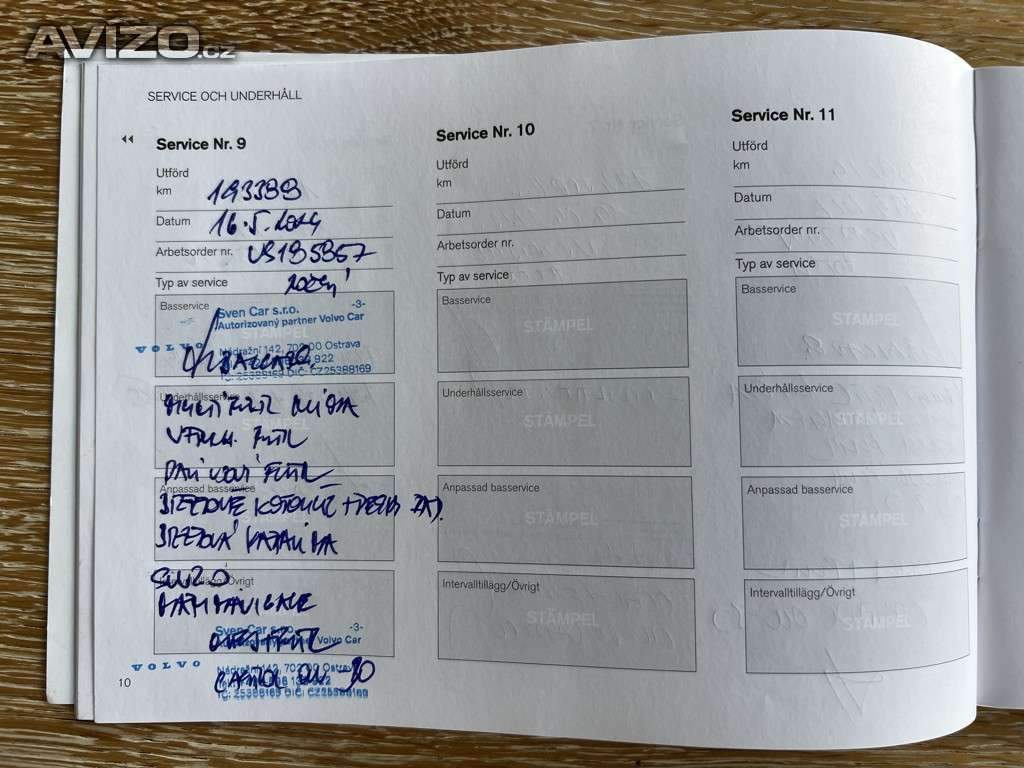 AVÍZO.cz
SERVICE OCH UNDERHÅLL
Service Nr. 9
Utförd
km 193389
Datum 16.5.2024
Arbetsorder nr. US185857
Typ av service roční
Basservice
Sven Car s.r.o. -3-
Autorizovaný partner Volvo Car
VOLVO
Nádražní 142, 702 00 Ostrava
DIČ: CZ25388169
Underhållsservice
FILTR
FILTR
FILTR
Anpassad basservice
BRZDOVÉ KOTOUČE +
BRZDOVÁ KAPALINA
Intervalltillägg/Övrigt
Sven Car s.r.o. -3-
Autorizovaný partner Volvo Car
VOLVO
Nádražní 142, 702 00 Ostrava
IČ: 25388169 DIČ: CZ25388169
10
Service Nr. 10
Utförd
km
Datum
Arbetsorder nr.
Typ av service
Basservice
STÄMPEL
Underhållsservice
STÄMPEL
Anpassad basservice
STÄMPEL
Intervalltillägg/Övrigt
STÄMPEL
Service Nr. 11
Utförd
km
Datum
Arbetsorder nr.
Typ av service
Basservice
STÄMPEL
Underhållsservice
STÄMPEL
Anpassad basservice
STÄMPEL
Intervalltillägg/Övrigt
STÄMPEL